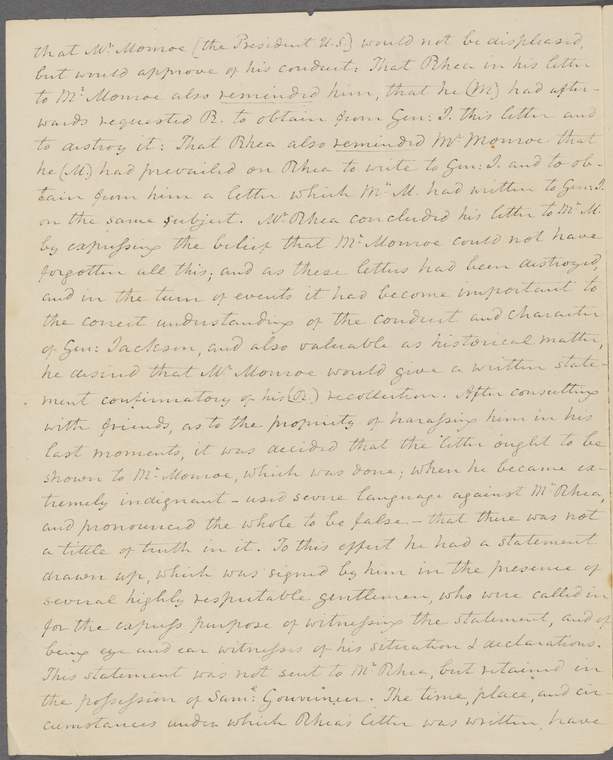 that Mr. Monroe (the President U.S.) would not be displeased,
but would approve of his conduct: That Rhea in his letter
to Mr. Monroe also reminded him, that he (M) had after-
wards requested R. to obtain from Gen: J. this letter and
to destroy it: That Rhea also reminded Mr. Monroe that
he (M.) had prevailed on Rhea to write to Gen: J. and to ob-
tain from him a letter which Mr. M. had written to Gen: J.
on the same subject. Mr. Rhea concluded his letter to Mr. M.
by expressing the belief that Mr. Monroe could not have
forgotten all this; and as these letters had been destroyed,
and in the turn of events it had become important to
the correct understanding of the conduct and character
of Gen: Jackson, and also valuable as historical matter,
he desired that Mr. Monroe would give a written state-
ment confirmatory of his (R.) recollection. After consulting
with friends, as to the propriety of harassing him in his
last moments, it was decided that the letter ought to be
shown to Mr. Monroe, which was done; when he became ex-
tremely indignant – used severe language against Mr. Rhea,
and pronounced the whole to be false – that there was not
a tittle of truth in it. To this effect he had a statement
drawn up, which was signed by him in the presence of
several highly respectable gentlemen, who were called in
for the express purpose of witnessing the statement, and of
being eye and ear witnesses of his situation & declarations.
This statement was not sent to Mr. Rhea, but retained in
the possession of Saml. Gouverneur. The time, place, and cir-
cumstances under which Rhea's letter was written, have